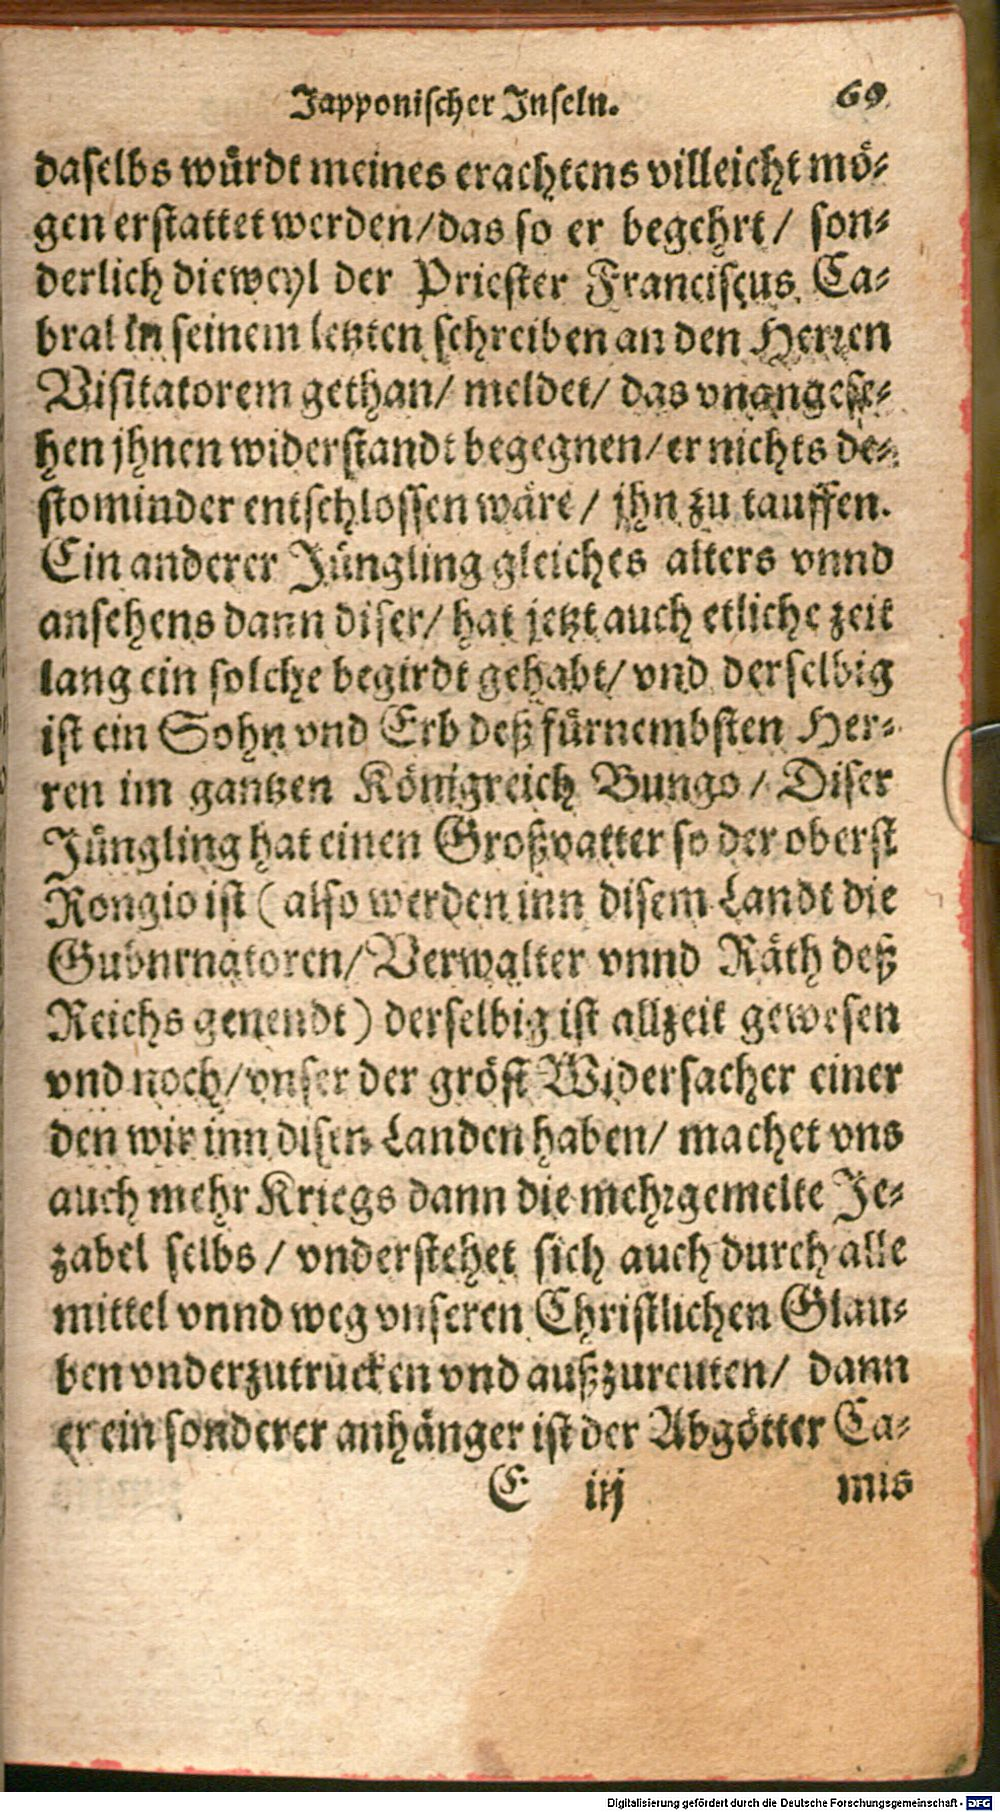 Japponischer Inseln. 69
daselbs würdt meines erachtens villeicht mö-
gen erstattet werden/das so er begehrt/ son-
derlich dieweyl der Priester Franciscus Ca-
bral in seinem letzten schreiben an den Herren
Visitatorem gethan/ meldet/ das vnangese-
hen jhnen widerstandt begegnen/er nichts de-
stominder entschlossen wäre/ jhn zu tauffen.
Ein anderer Jüngling gleiches alters vnnd
ansehens dann diser/ hat jetzt auch etliche zeit
lang ein solche begirdt gehabt/ vnd derselbig
ist ein Sohn vnd Erb deß fürnembsten Her-
ren im gantzen Königreich Bungo/ Diser
Jüngling hat einen Großvatter so der oberst
Rongio ist (also werden inn disem Landt die
Gubnrnatoren/Verwalter vnnd Räth deß
Reichs genendt) derselbig ist allzeit gewesen
vnd noch/vnser der gröst Widersacher einer
den wir inn disen Landen haben/ machet vns
auch mehr Kriegs dann die mehrgemelte Je-
zabel selbs / vnderstehet sich auch durch alle
mittel vnnd weg vnseren Christlichen Glau-
ben vnderzutrucken vnd außzureuten/ dann
er ein sonderer anhänger ist der Abgötter Ca-
E iij mis
Digitalisierung gefördert durch die Deutsche Forschungsgemeinschaft - DFG